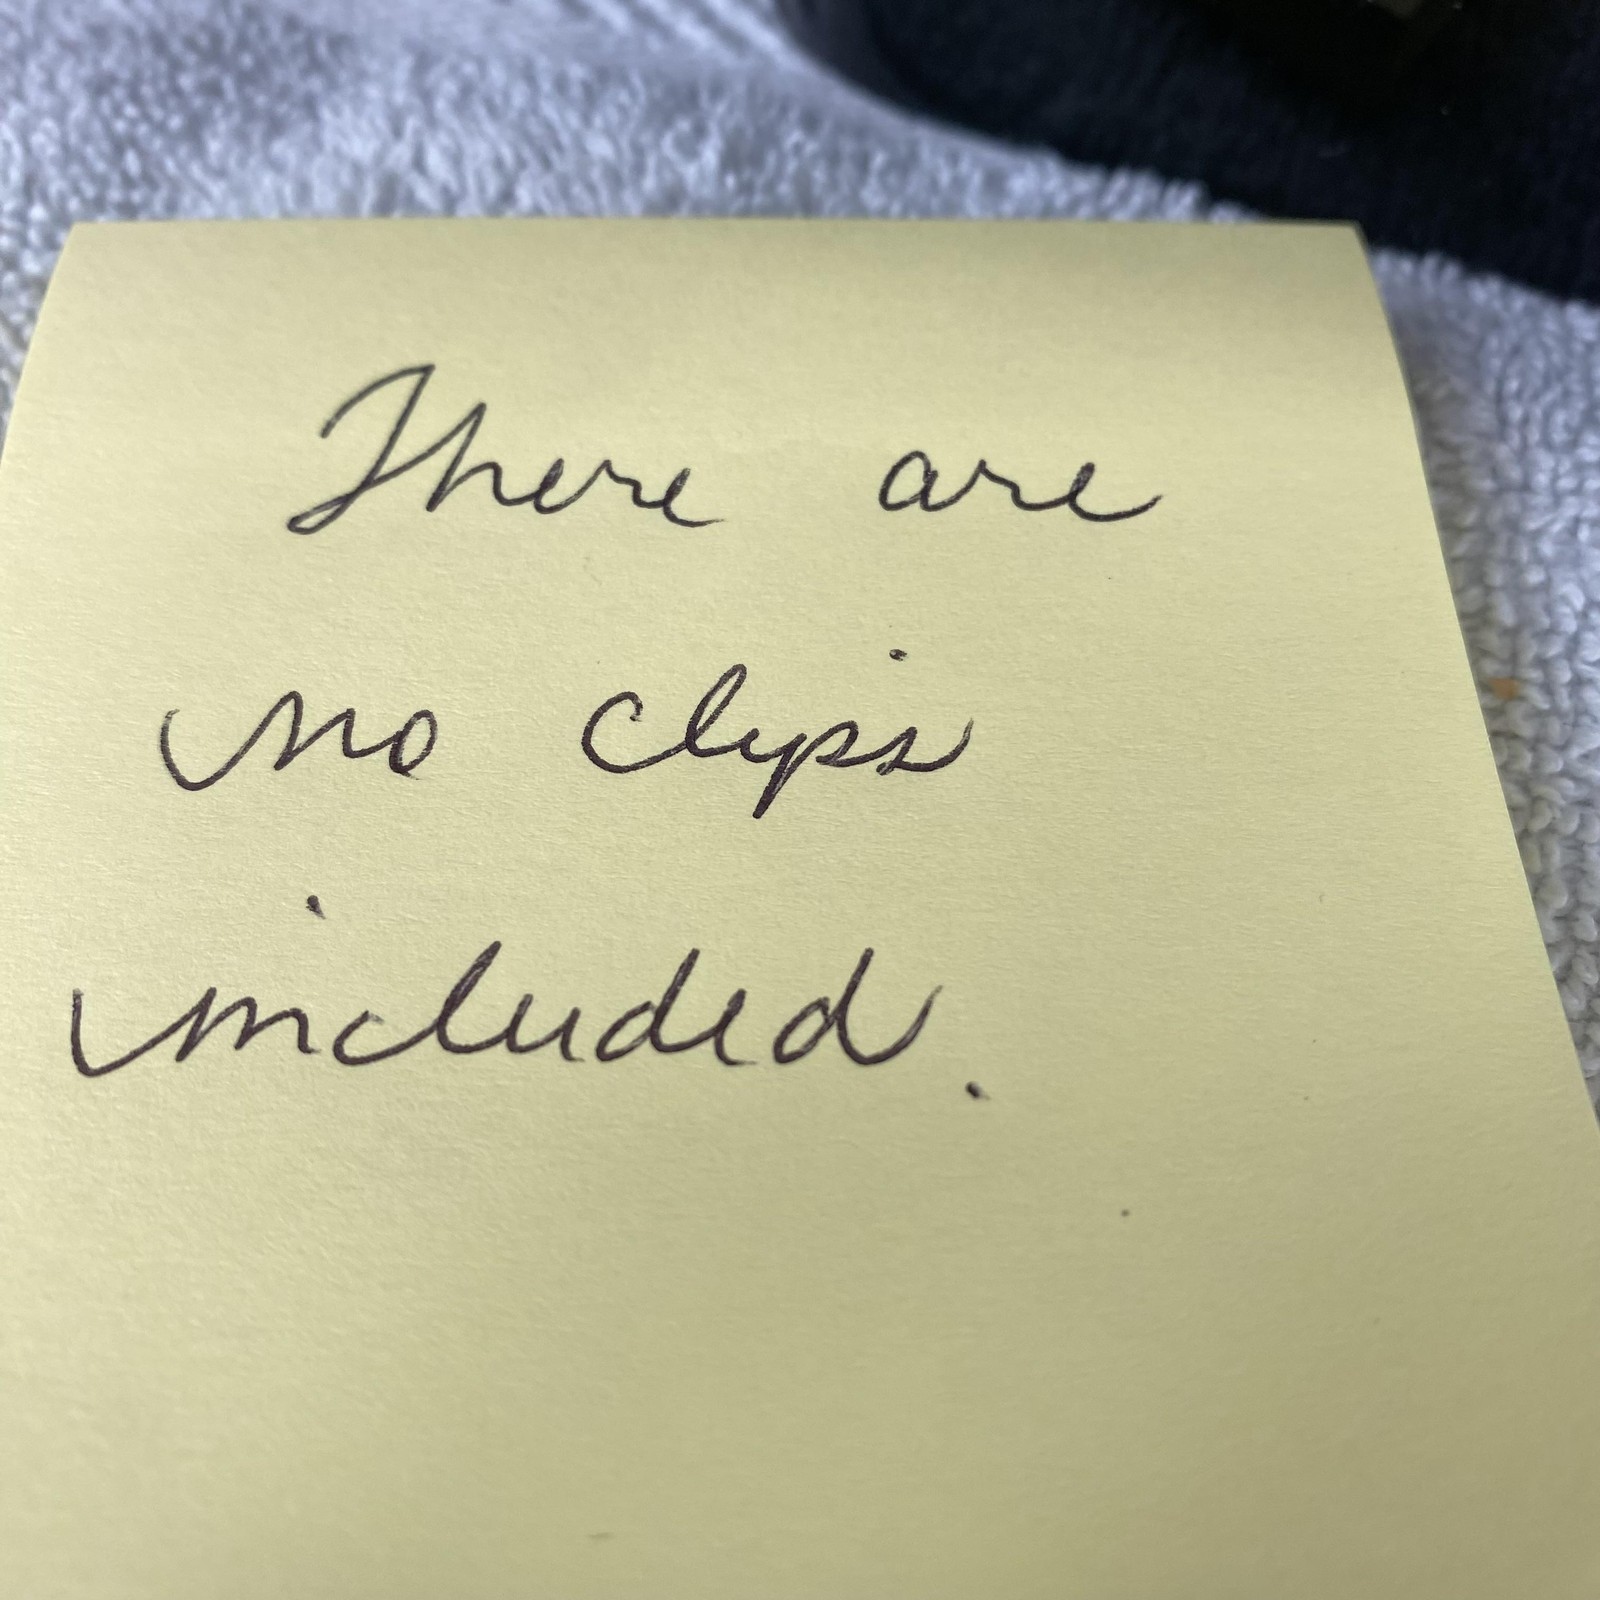 There are
no clips
included.